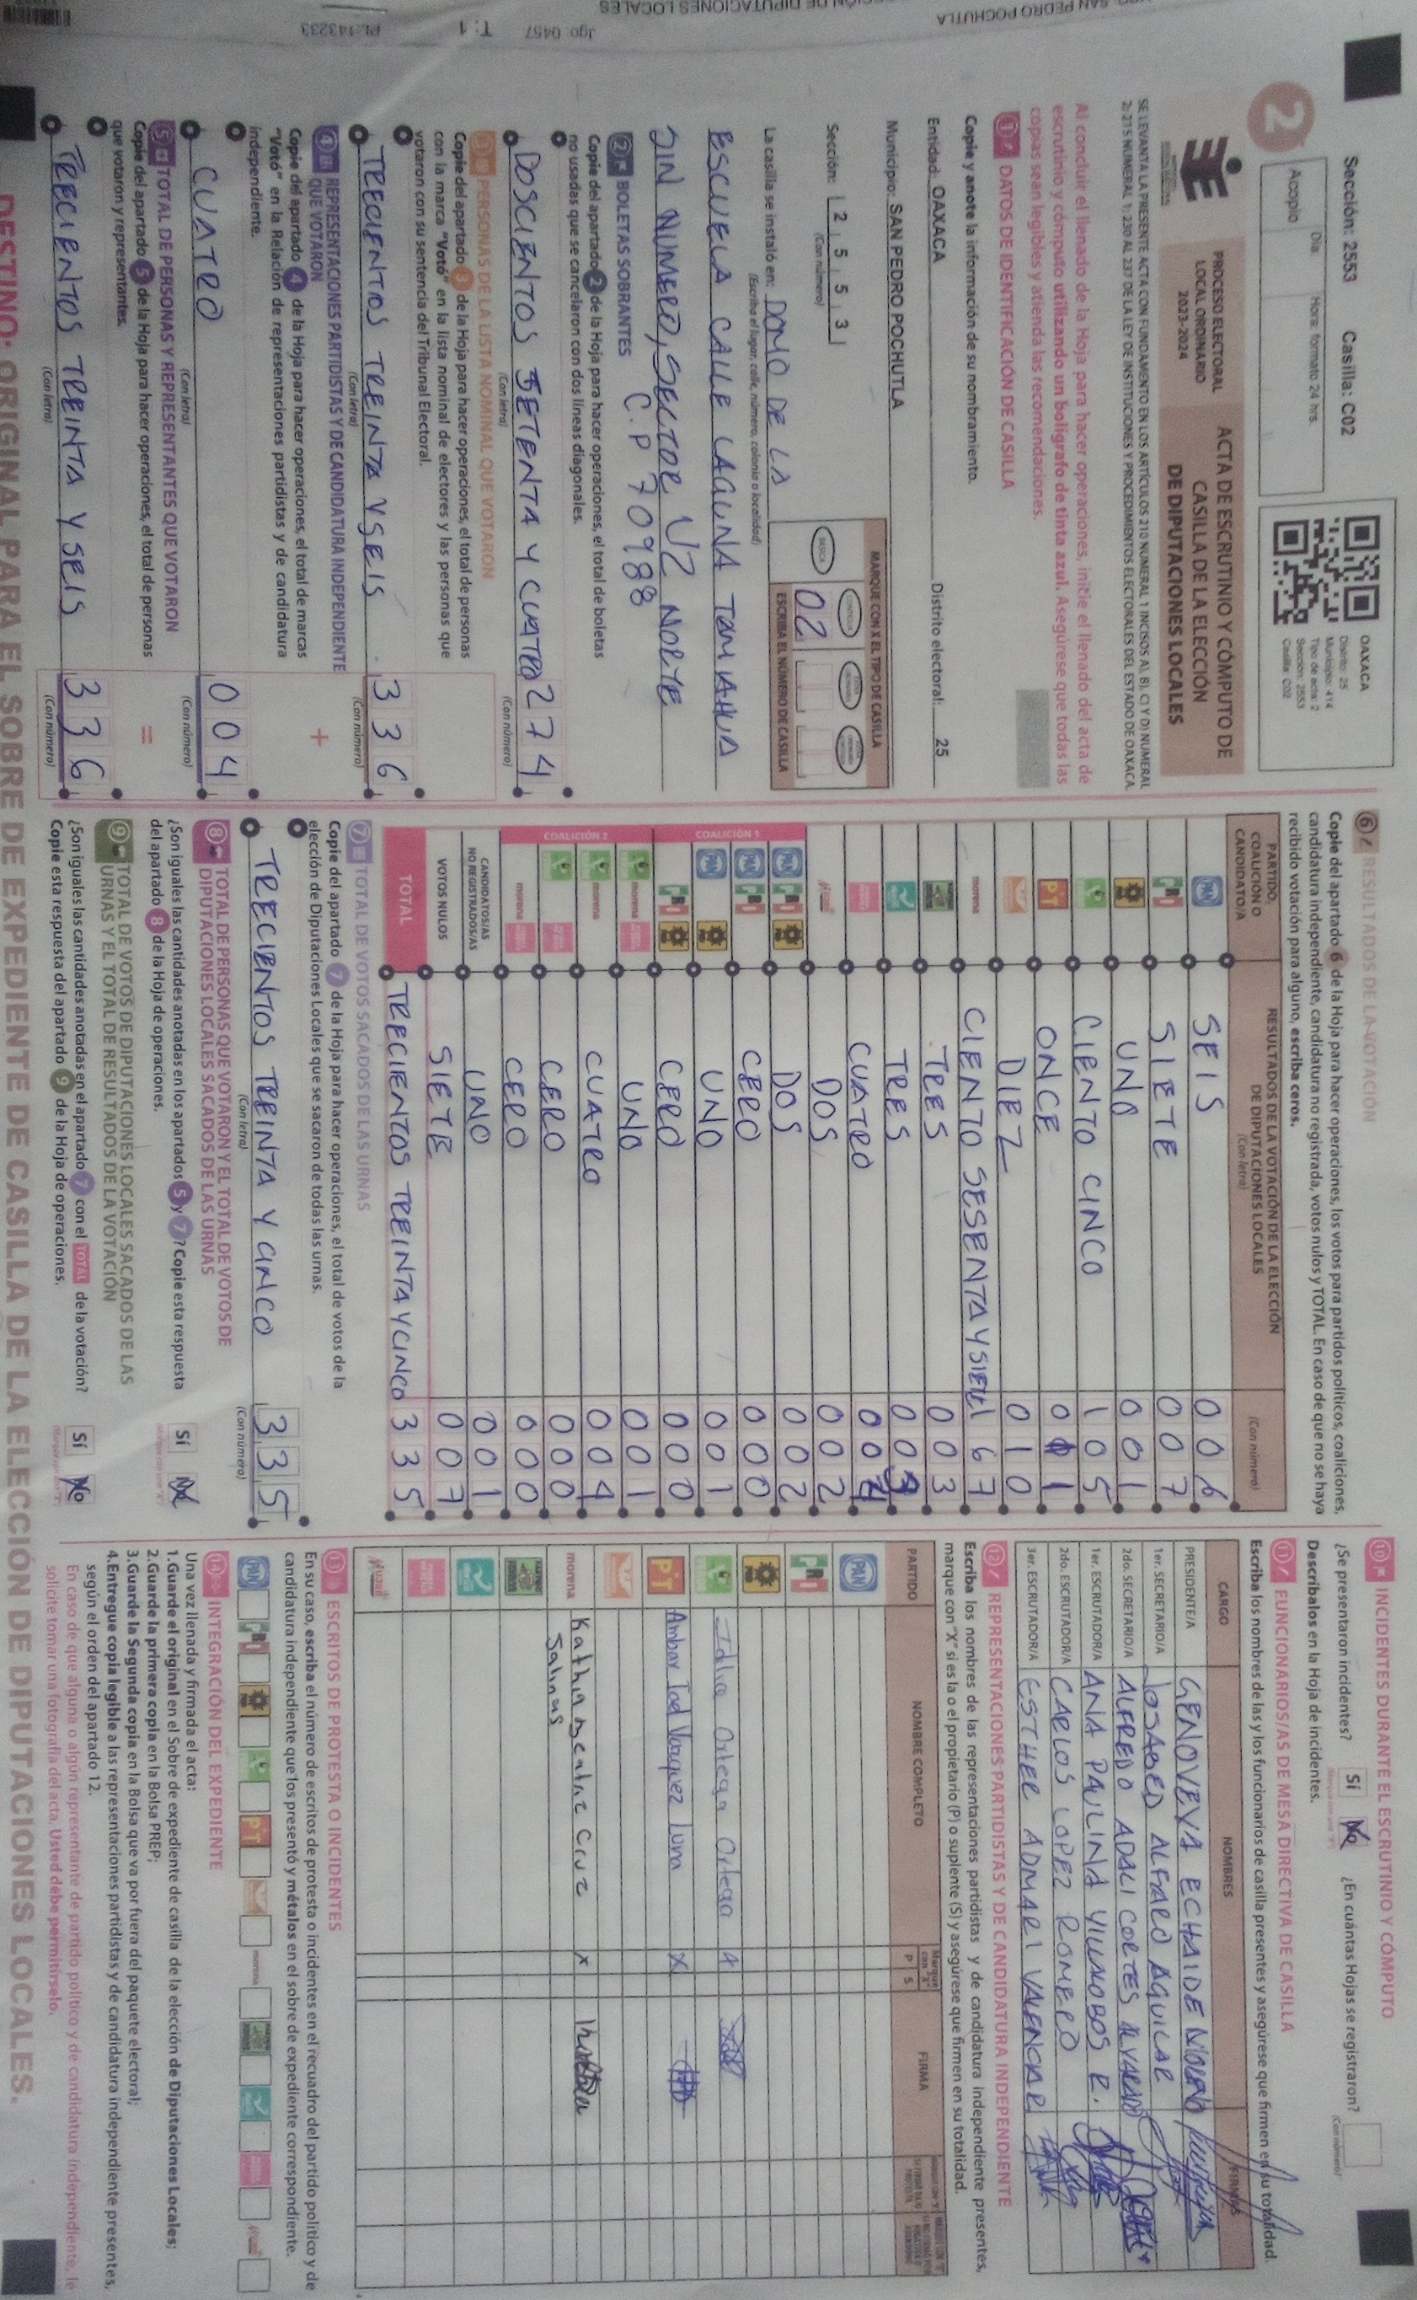 SAN PEDRO POCHUTLA
Jgo: 0457 T: 1
2
Sección: 2553 Casilla: C02
Acopio
Día
Hora: formato 24 hrs.
OAXACA
Distrito: 25
Municipio: 414
Tipo de acta: 2
Sección: 2553
Casilla: C02
PROCESO ELECTORAL
LOCAL ORDINARIO
2023-2024
ACTA DE ESCRUTINIO Y CÓMPUTO DE
CASILLA DE LA ELECCIÓN
DE DIPUTACIONES LOCALES
SE LEVANTA LA PRESENTE ACTA CON FUNDAMENTO EN LOS ARTÍCULOS 210 NUMERAL 1 INCISOS A), B), C) Y D) NUMERAL
2; 215 NUMERAL 1; 230 AL 237 DE LA LEY DE INSTITUCIONES Y PROCEDIMIENTOS ELECTORALES DEL ESTADO DE OAXACA.
Al concluir el llenado de la Hoja para hacer operaciones, inicie el llenado del acta de
escrutinio y cómputo utilizando un bolígrafo de tinta azul. Asegúrese que todas las
copias sean legibles y atienda las recomendaciones.
1 DATOS DE IDENTIFICACIÓN DE CASILLA
Copie y anote la información de su nombramiento.
Entidad: OAXACA Distrito electoral: 25
Municipio: SAN PEDRO POCHUTLA
Sección: 2 5 5 3
(Con número)
MARQUE CON X EL TIPO DE CASILLA
02
ESCRIBA EL NÚMERO DE CASILLA
La casilla se instaló en: DOMO DE LA
(Escriba el lugar, calle, número, colonia o localidad)
ESCUELA CALLE LAGUNA TAMIAHUA
SIN NUMERO, SECTOR U2 NORTE
C.P 70988
2 BOLETAS SOBRANTES
Copie del apartado 2 de la Hoja para hacer operaciones, el total de boletas
no usadas que se cancelaron con dos líneas diagonales.
DOSCIENTOS SETENTA Y CUATRO 274
(Con letra) (Con número)
3 PERSONAS DE LA LISTA NOMINAL QUE VOTARON
Copie del apartado 3 de la Hoja para hacer operaciones, el total de personas
con la marca "Votó" en la lista nominal de electores y las personas que
votaron con su sentencia del Tribunal Electoral.
TRECIENTOS TREINTA Y SEIS 336
(Con letra) (Con número)
4 REPRESENTACIONES PARTIDISTAS Y DE CANDIDATURA INDEPENDIENTE
QUE VOTARON
Copie del apartado 4 de la Hoja para hacer operaciones, el total de marcas
"Votó" en la Relación de representaciones partidistas y de candidatura
independiente.
+
CUATRO 004
(Con letra) (Con número)
5 TOTAL DE PERSONAS Y REPRESENTANTES QUE VOTARON
Copie del apartado 5 de la Hoja para hacer operaciones, el total de personas
que votaron y representantes.
=
TRECIENTOS TREINTA Y SEIS 336
(Con letra) (Con número)
6 RESULTADOS DE LA VOTACIÓN
Copie del apartado 6 de la Hoja para hacer operaciones, los votos para partidos políticos, coaliciones,
candidatura independiente, candidatura no registrada, votos nulos y TOTAL. En caso de que no se haya
recibido votación para alguno, escriba ceros.
PARTIDO,
COALICIÓN O
CANDIDATO/A
RESULTADOS DE LA VOTACIÓN DE LA ELECCIÓN
DE DIPUTACIONES LOCALES
(Con letra) (Con número)
PAN SEIS 006
PRI SIETE 007
PRD UNO 001
CIENTO CINCO 105
PT ONCE 011
DIEZ 010
morena CIENTO SESENTA Y SIETE 167
TRES 003
TRES 003
CUATRO 004
DOS 002
COALICIÓN 1
PAN PRI PRD DOS 002
PAN PRI CERO 000
PAN PRD UNO 001
PRI PRD CERO 000
COALICIÓN 2
morena UNO 001
morena CUATRO 004
CERO 000
morena CERO 000
CANDIDATOS/AS
NO REGISTRADOS/AS UNO 001
VOTOS NULOS SIETE 007
TOTAL TRECIENTOS TREINTA Y CINCO 335
7 TOTAL DE VOTOS SACADOS DE LAS URNAS
Copie del apartado 7 de la Hoja para hacer operaciones, el total de votos de la
elección de Diputaciones Locales que se sacaron de todas las urnas.
TRECIENTOS TREINTA Y CINCO 335
(Con letra) (Con número)
8 TOTAL DE PERSONAS QUE VOTARON Y EL TOTAL DE VOTOS DE
DIPUTACIONES LOCALES SACADOS DE LAS URNAS
¿Son iguales las cantidades anotadas en los apartados 5 y 7? Copie esta respuesta
del apartado 8 de la Hoja de operaciones.
Sí No
9 TOTAL DE VOTOS DE DIPUTACIONES LOCALES SACADOS DE LAS
URNAS Y EL TOTAL DE RESULTADOS DE LA VOTACIÓN
¿Son iguales las cantidades anotadas en el apartado 7 con el TOTAL de la votación?
Copie esta respuesta del apartado 9 de la Hoja de operaciones.
Sí No
10 INCIDENTES DURANTE EL ESCRUTINIO Y CÓMPUTO
¿Se presentaron incidentes? Sí No ¿En cuántas Hojas se registraron?
(Con número)
Descríbalos en la Hoja de incidentes.
11 FUNCIONARIOS/AS DE MESA DIRECTIVA DE CASILLA
Escriba los nombres de las y los funcionarios de casilla presentes y asegúrese que firmen en su totalidad.
CARGO NOMBRES FIRMAS
PRESIDENTE/A GENOVEVA ECHAIDE
1er. SECRETARIO/A JOSABED ALFARO AGUILAR
2do. SECRETARIO/A ALFREDO ADALI CORTES ALVARADO
1er. ESCRUTADOR/A ANA PAULINA VILLALOBOS R.
2do. ESCRUTADOR/A CARLOS LOPEZ ROMERO
3er. ESCRUTADOR/A ESTHER ADMARI
12 REPRESENTACIONES PARTIDISTAS Y DE CANDIDATURA INDEPENDIENTE
Escriba los nombres de las representaciones partidistas y de candidatura independiente presentes,
marque con "X" si es la o el propietario (P) o suplente (S) y asegúrese que firmen en su totalidad.
PARTIDO NOMBRE COMPLETO P S FIRMA
PAN
PRI
PRD
Idlia Ortega Ortega
PT Ambar Vazquez Luna X
morena Cruz X
Salinas
13 ESCRITOS DE PROTESTA O INCIDENTES
En su caso, escriba el número de escritos de protesta o incidentes en el recuadro del partido político y de
candidatura independiente que los presentó y métalos en el sobre de expediente correspondiente.
PAN PRI PRD PT morena
14 INTEGRACIÓN DEL EXPEDIENTE
Una vez llenada y firmada el acta:
1.Guarde el original en el Sobre de expediente de casilla de la elección de Diputaciones Locales;
2.Guarde la primera copia en la Bolsa PREP;
3.Guarde la Segunda copia en la Bolsa que va por fuera del paquete electoral;
4.Entregue copia legible a las representaciones partidistas y de candidatura independiente presentes,
según el orden del apartado 12.
En caso de que alguna o algún representante de partido político y de candidatura independiente, le
solicite tomar una fotografía del acta. Usted debe permitírselo.
DESTINO: ORIGINAL PARA EL SOBRE DE EXPEDIENTE DE CASILLA DE LA ELECCIÓN DE DIPUTACIONES LOCALES.